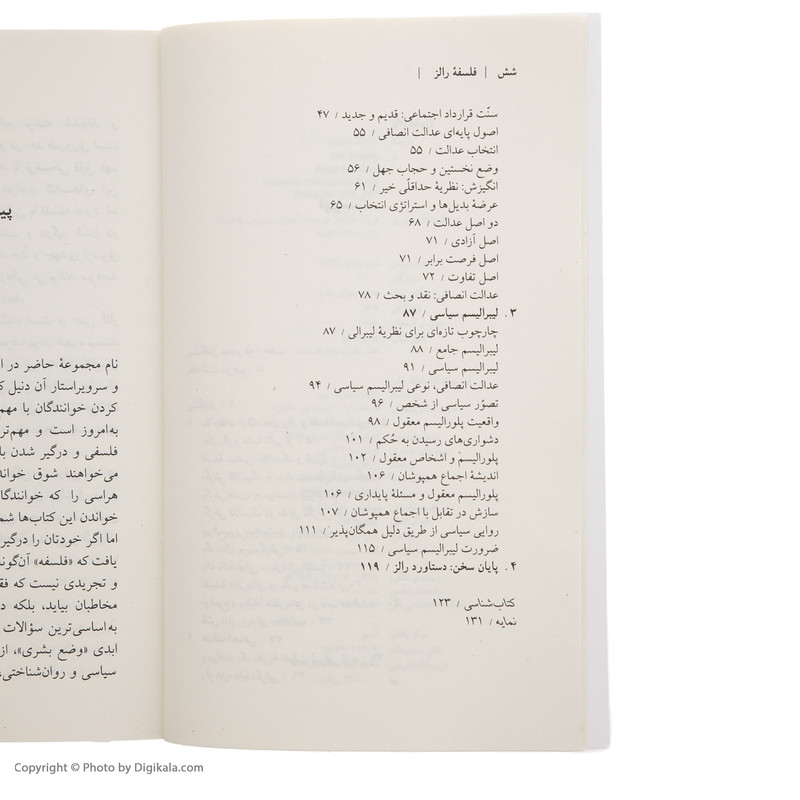 شش | فلسفهٔ رالز |
سنّت قرارداد اجتماعی: قدیم و جدید / ۴۷
اصول پایه‌ای عدالت انصافی / ۵۵
انتخاب عدالت / ۵۵
وضع نخستین و حجاب جهل / ۵۶
انگیزش: نظریهٔ حداقلّی خیر / ۶۱
عرضهٔ بدیل‌ها و استراتژی انتخاب / ۶۵
دو اصل عدالت / ۶۸
اصل آزادی / ۷۱
اصل فرصت برابر / ۷۱
اصل تفاوت / ۷۲
عدالت انصافی: نقد و بحث / ۷۸
۳. لیبرالیسم سیاسی / ۸۷
چارچوب تازه‌ای برای نظریهٔ لیبرالی / ۸۷
لیبرالیسم جامع / ۸۸
لیبرالیسم سیاسی / ۹۱
عدالت انصافی، نوعی لیبرالیسم سیاسی / ۹۴
تصوّر سیاسی از شخص / ۹۶
واقعیت پلورالیسم معقول / ۹۸
دشواری‌های رسیدن به حُکم / ۱۰۱
پلورالیسم و اشخاص معقول / ۱۰۲
اندیشهٔ اجماع همپوشان / ۱۰۶
پلورالیسم معقول و مسئلهٔ پایداری / ۱۰۶
سازش در تقابل با اجماع همپوشان / ۱۰۷
روایی سیاسی از طریق دلیل همگان‌پذیر / ۱۱۱
ضرورت لیبرالیسم سیاسی / ۱۱۵
۴. پایان سخن: دستاورد رالز / ۱۱۹
کتاب‌شناسی / ۱۲۳
نمایه / ۱۳۱
نام مجموعهٔ حاضر در
و سرویراستار آن دنیل
کردن خوانندگان با مهم
به‌امروز است و مهم‌تر
فلسفی و درگیر شدن با
می‌خواهند شوق
هراسی را که
خواندن این کتاب‌ها
اما اگر خودتان را درگیر
یافت که «فلسفه»
و تجریدی نیست که
مخاطبان بیاید، بلکه
به‌اساسی‌ترین سؤالات
ابدی «وضع بشری»، از
سیاسی و روان‌شناختی،
Copyright © Photo by Digikala.com